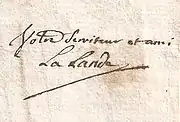 Votre Serviteur et ami
La Lande